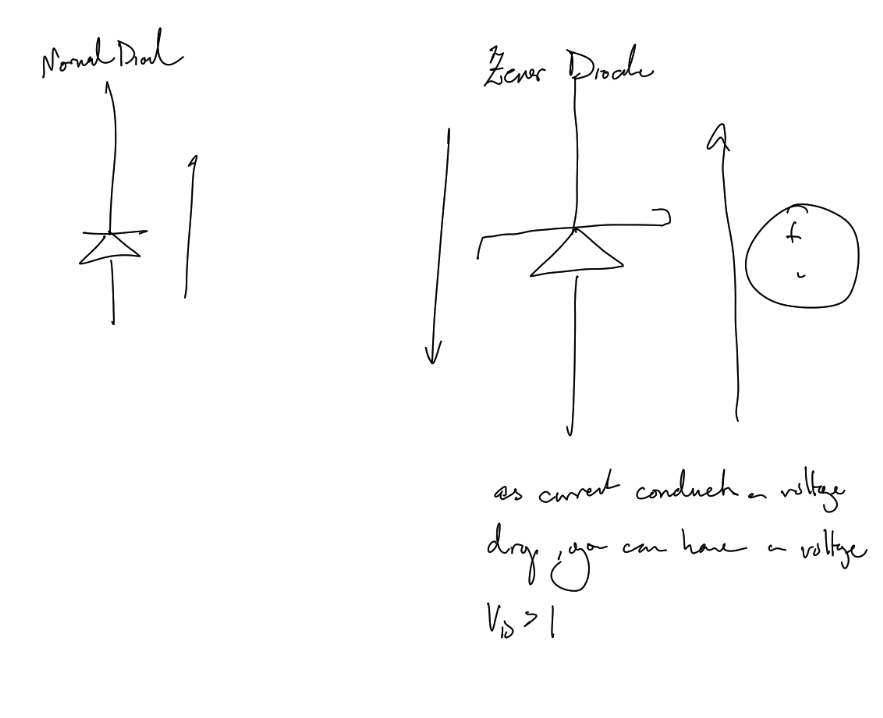 Normal Diod
Zener Diode
as current conducts a voltage
drop, you can have a voltage
V > 1